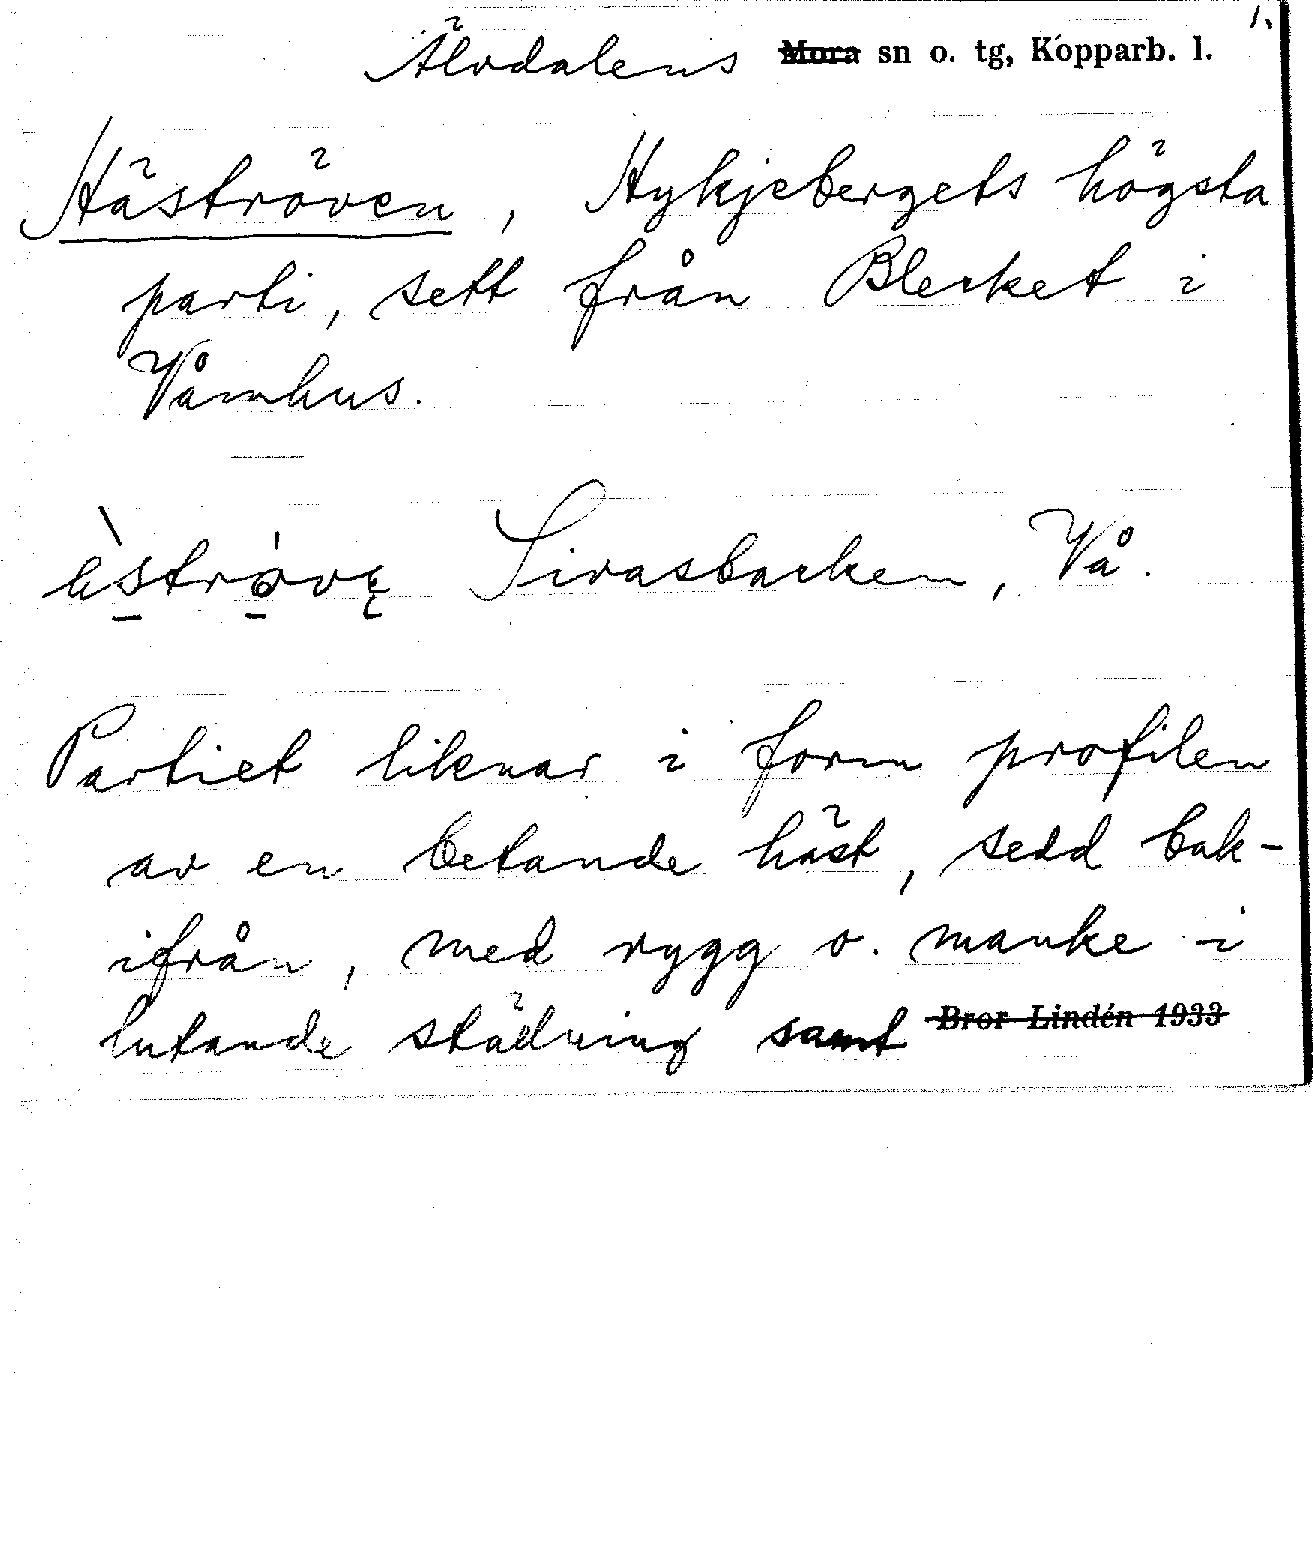 1.
Älvdalens ~~Mora~~ sn o. tg, Kopparb. l.
Häströven, Hykjebergets högsta
parti, sett från Blecket i
Våmhus.
Sivasbacken, Vå.
Partiet liknar i form profilen
av en betande häst, sedd bak-
ifrån, med rygg o. manke i
lutande ställning samt ~~Bror Lindén 1933~~